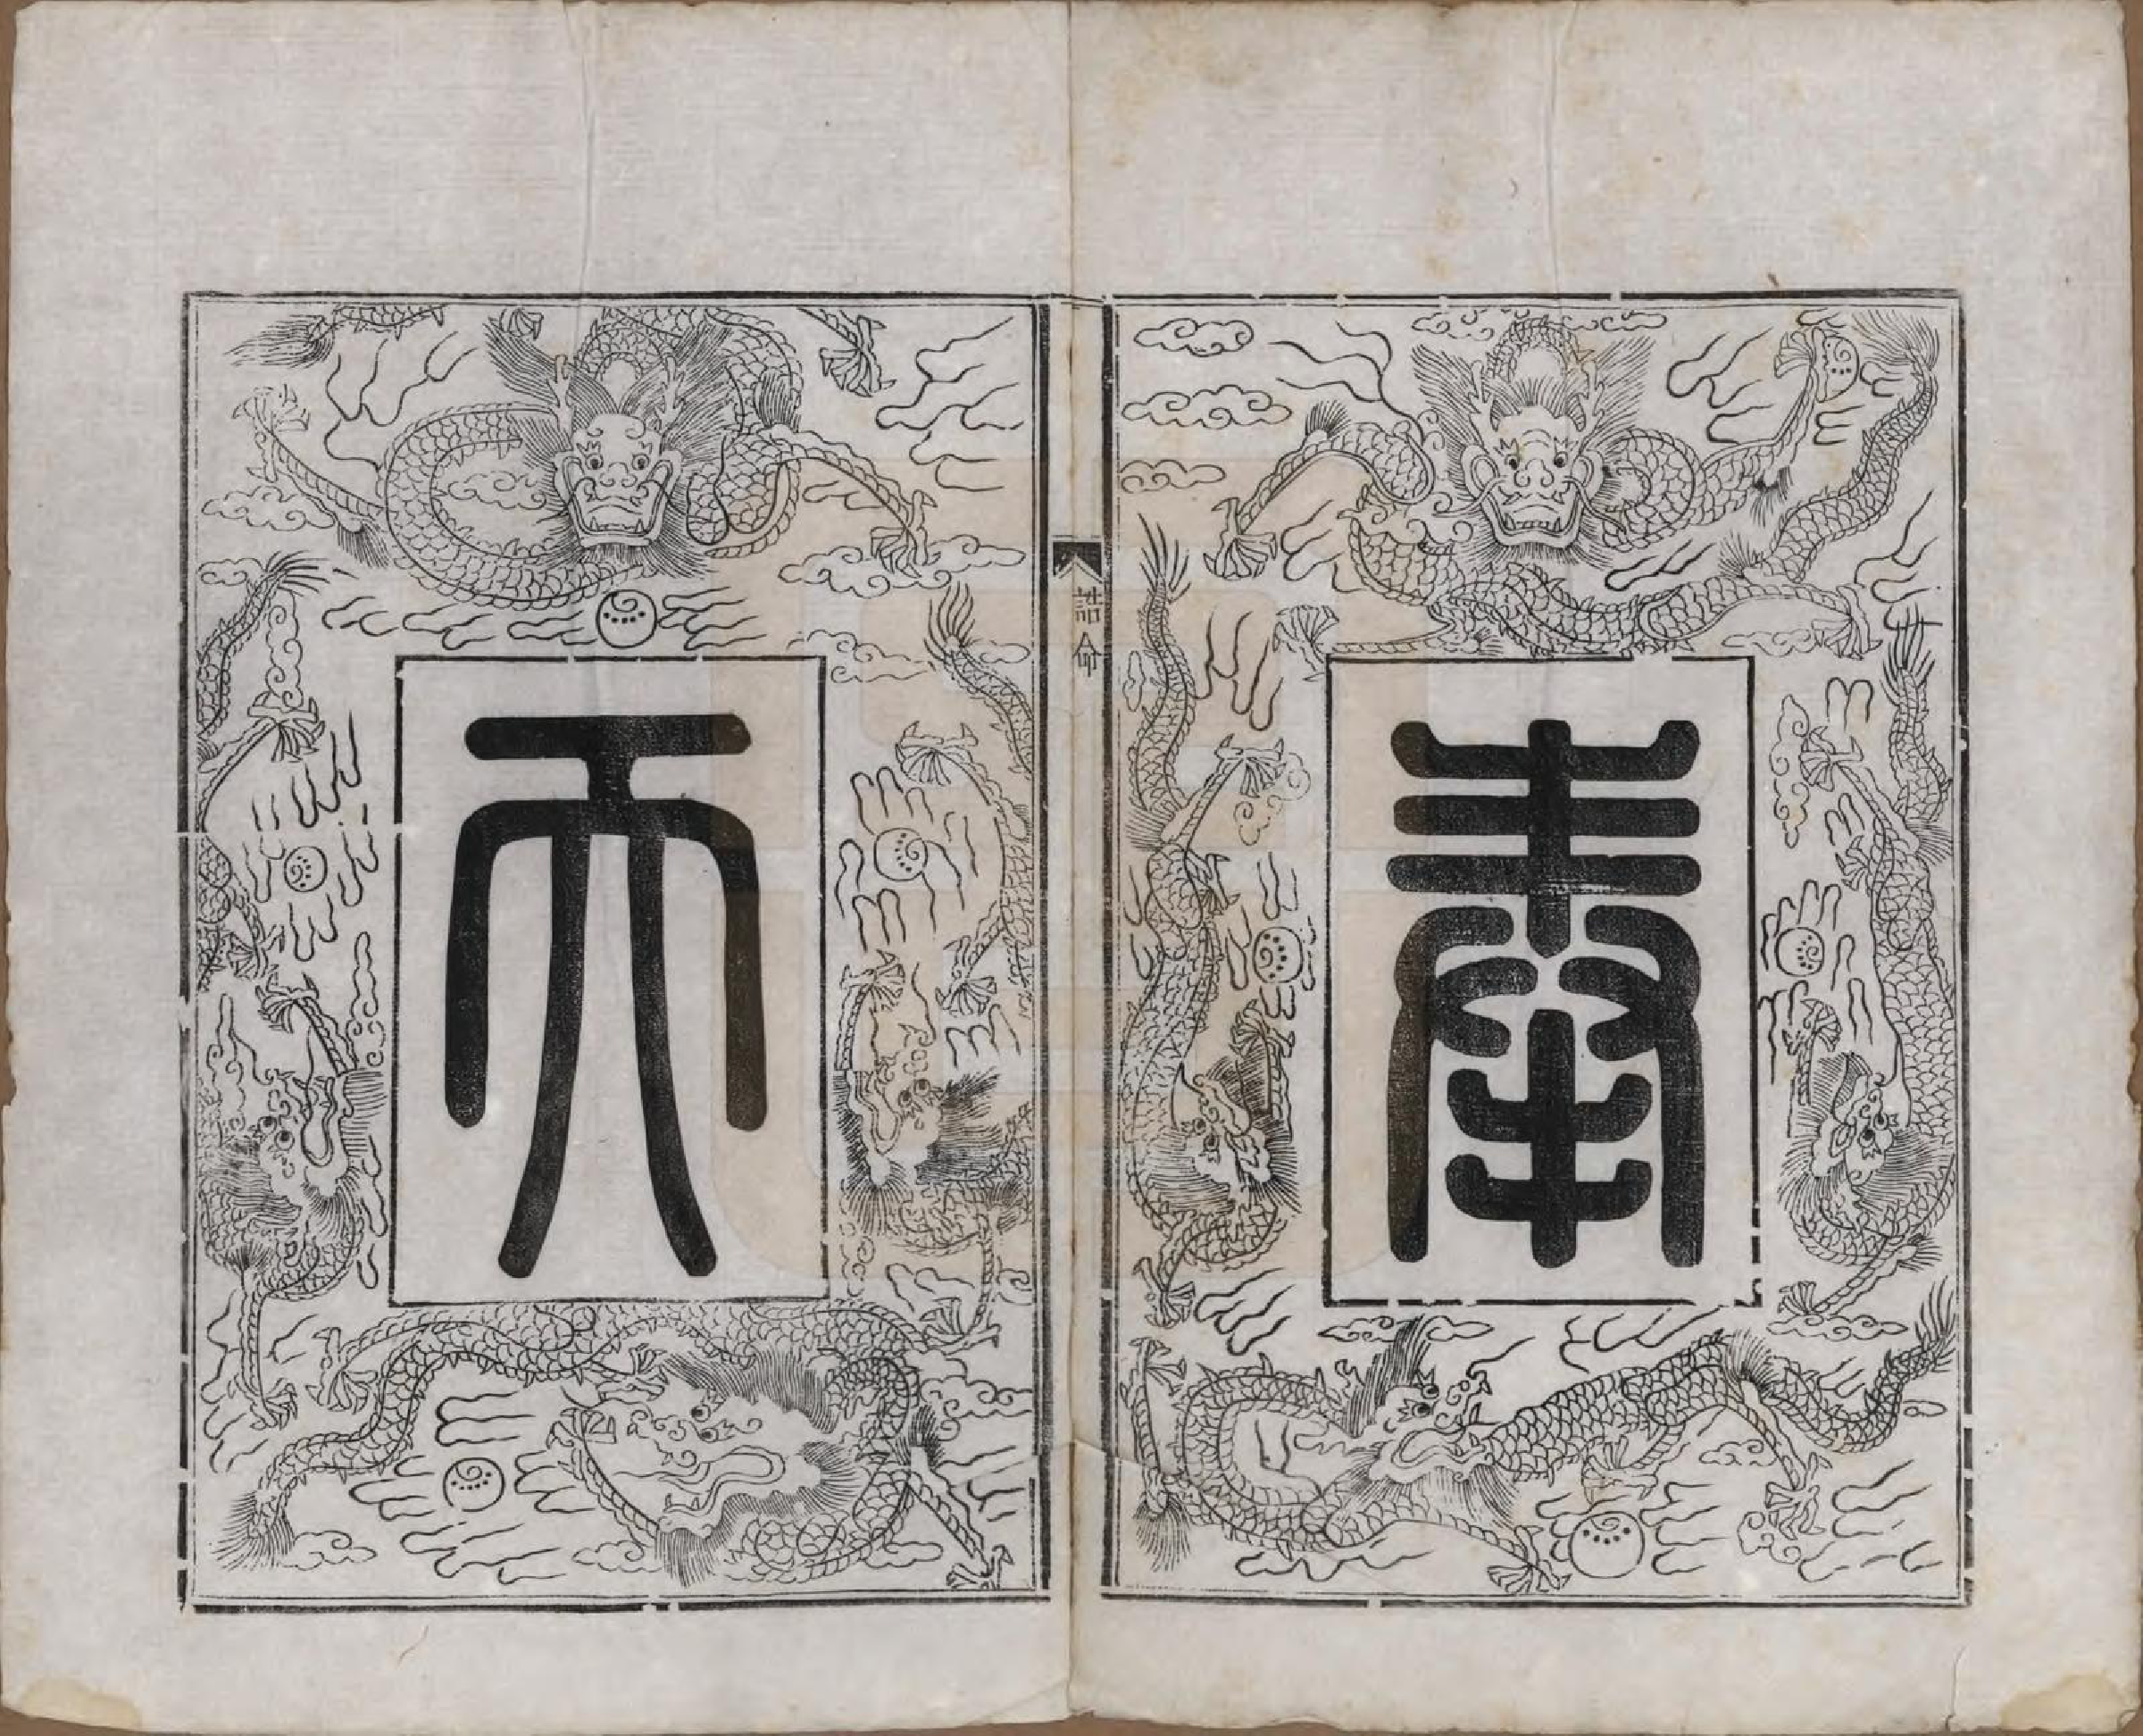 奉
誥命
天